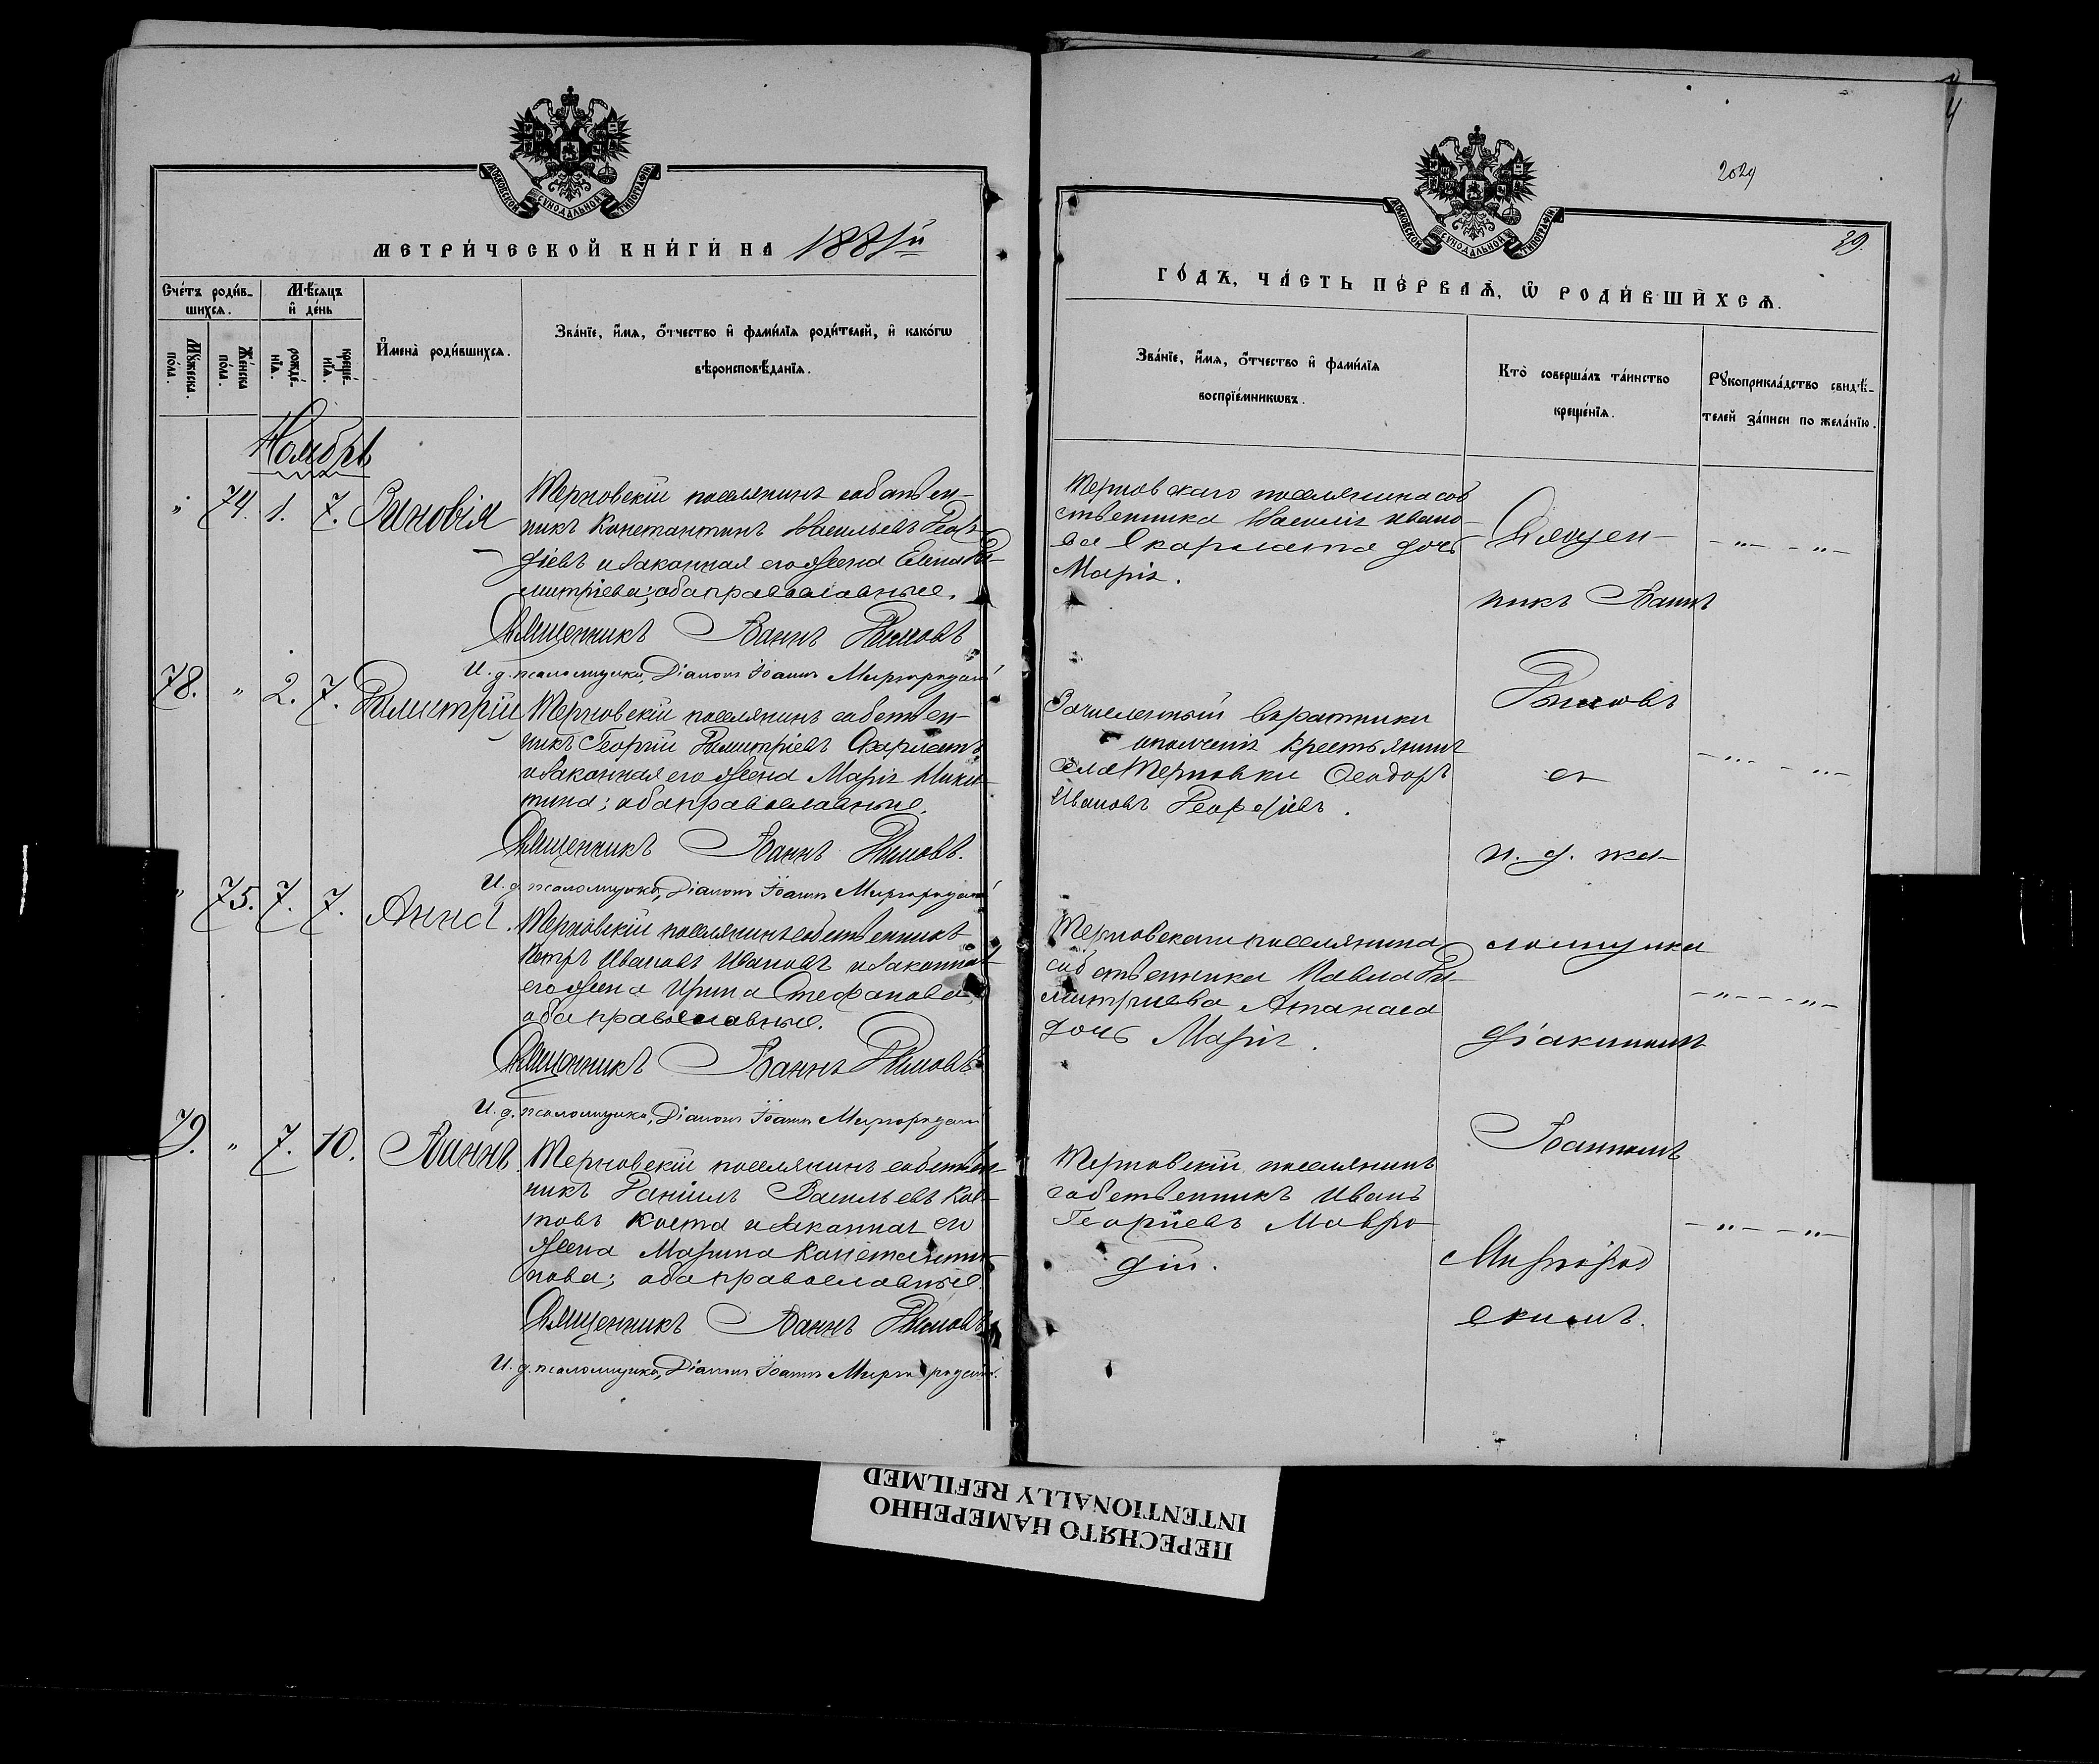 МОСКОВСКОЙ СѴНОДАЛЬНОЙ ТИПОГРАФІИ
МЕТРИ́ЧЕСКОЙ КНИ́ГИ НА 1881й
Сче́тъ роди́в-
шихся.
Мѣ́сяцъ
и҆ де́нь
Мꙋ́жеска
по́ла.
Же́нска
по́ла.
рожде́-
нїѧ.
креще́-
нїѧ.
И҆мена̀ роди́вшихся.
Зва́нїе, и҆́мѧ, ѻ҆́тчество и҆ фами́лїѧ роди́телей, и҆ како́гѡ
вѣроисповѣ́данїѧ.
Ноябрь
" 74. 1. 7. Зиновія
Терновскій поселянинъ собствен-
никъ Константинъ Васильевъ Геор-
гіевъ и законная его жена Елена Ди-
митріева; оба православные.
Священникъ Іоаннъ Дымовъ
И. д. псаломщика, Діаконъ Іоаннъ Миргородскій
78. " 2. 7. Димитрій
Терновскій поселянинъ собствен-
никъ Георгій Димитріевъ Скарлатъ
и законная его жена Марія Ники-
тина; оба православные.
Священникъ Іоаннъ Дымовъ.
И. д. псаломщика, Діаконъ Іоаннъ Миргородскій
" 75. 7. 7. Анна.
Терновскій поселянинъ собственникъ
Петръ Ивановъ Ивановъ и законная
его жена Ирина Стефанова;
оба православные.
Священникъ Іоаннъ Дымовъ
И. д. псаломщика, Діаконъ Іоаннъ Миргородскій
79. " 7. 10. Іоаннъ
Терновскій поселянинъ собствен-
никъ Даніилъ Васильевъ
Коста и законная его
жена Марина Константи-
нова; оба православные.
Священникъ Іоаннъ Дымовъ
И. д. псаломщика, Діаконъ Іоаннъ Миргородскій.
39.
МОСКОВСКОЙ СѴНОДАЛЬНОЙ ТИПОГРАФІИ
ГО́ДЪ, ЧА́СТЬ ПЕ́РВАѦ, Ѡ҆ РОДИ́ВШИХСѦ.
Зва́нїе, и҆́мѧ, ѻ҆́тчество и҆ фами́лїѧ
воспрїе́мникѡвъ.
Кто̀ соверша́лъ та́инство
креще́нїѧ.
Рꙋкоприкла́дство свидѣ́-
телей за́писи по жела́нїю.
Терновскаго поселянина соб
ственника Василія Ивано-
ва Скарлата дочь
Марія.
Зачисленный въ ратники
ополченія крестьянинъ
села Терновки Ѳеодоръ
Ивановъ Георгіевъ.
Терновскаго поселянина
собственника Павла Ди-
митриева Атанаса
дочь Марія.
Терновскій поселянинъ
собственникъ Иванъ
Георгіевъ Мавро-
дій.
Священ-
никъ Іоаннъ
Дымовъ
съ
и. д. пса-
ломщика
діакономъ
Іоанномъ
Миргород
скимъ.
- " - - " -
- " - - " -
- " - - " -
- " - - " -
ПЕРЕСНЯТО НАМЕРЕННО
INTENTIONALLY REFILMED